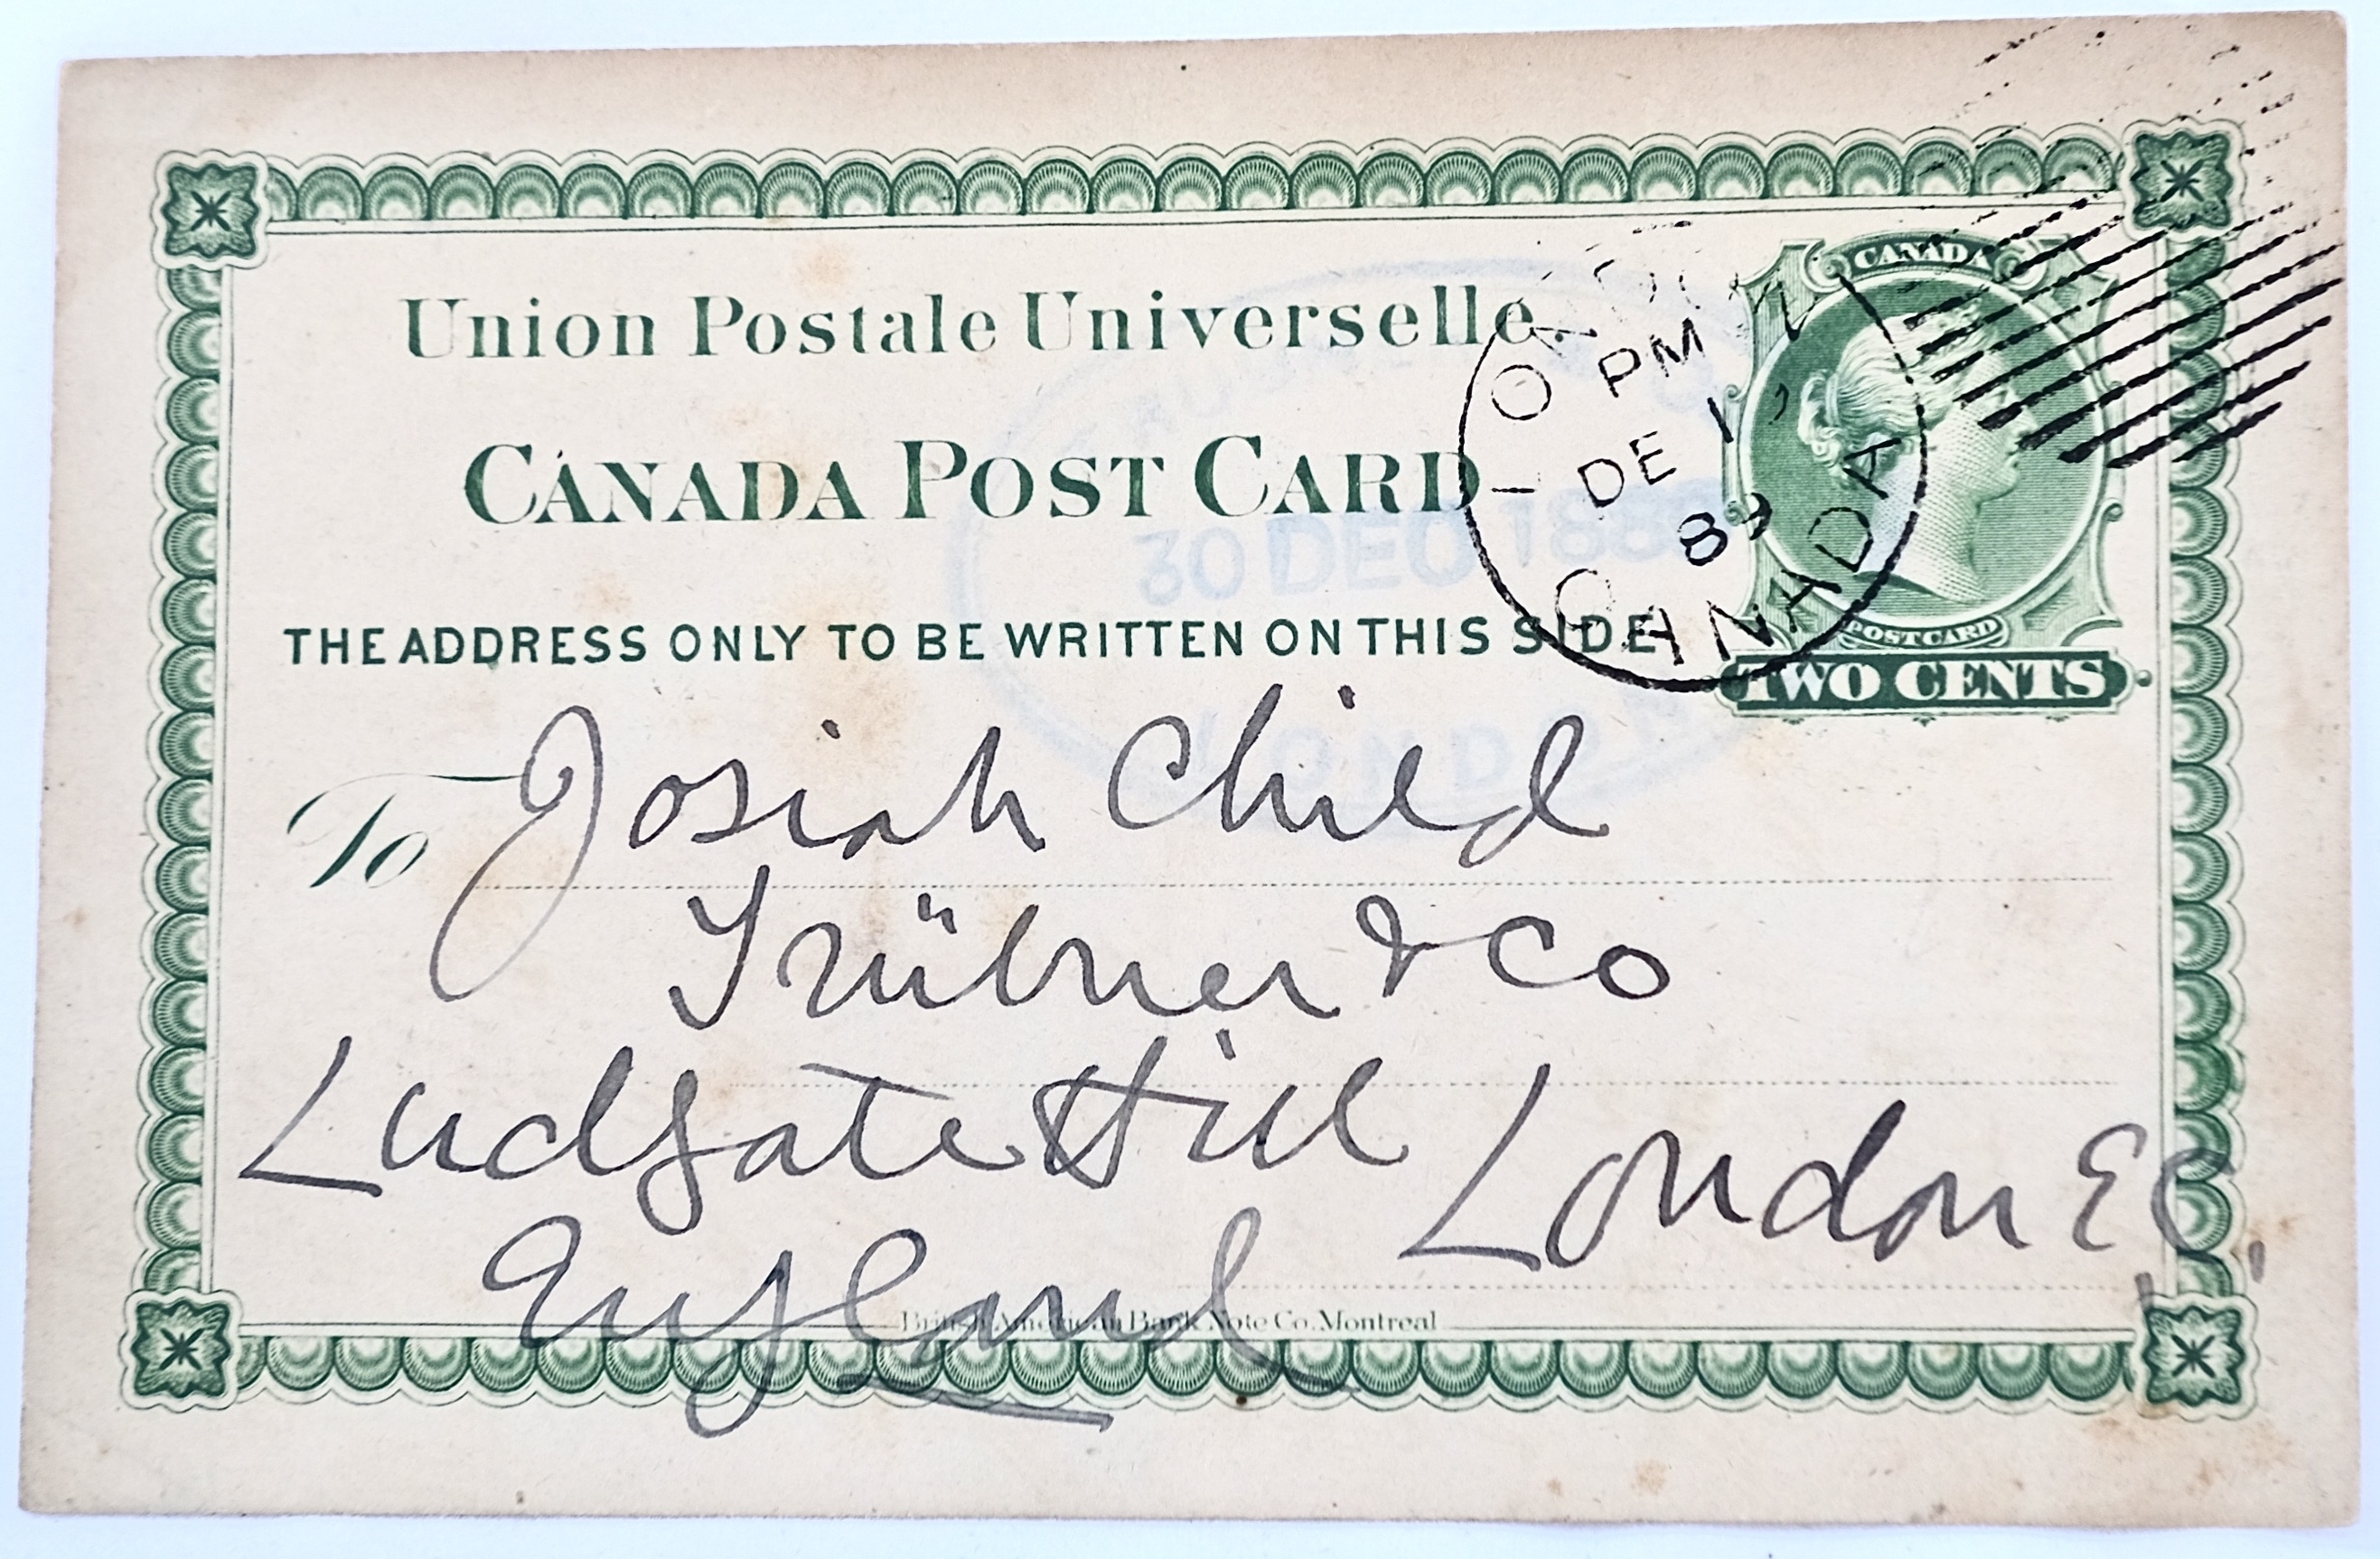 Union Postale Universelle
CANADA POST CARD
THE ADDRESS ONLY TO BE WRITTEN ON THIS SIDE
CANADA
POST CARD
TWO CENTS
PM
DE 1
89
CANADA
30 DEC 188
LONDON
To Josiah Child
Trübner & Co
Ludgate Hill London E.C.
England
British American Bank Note Co. Montreal